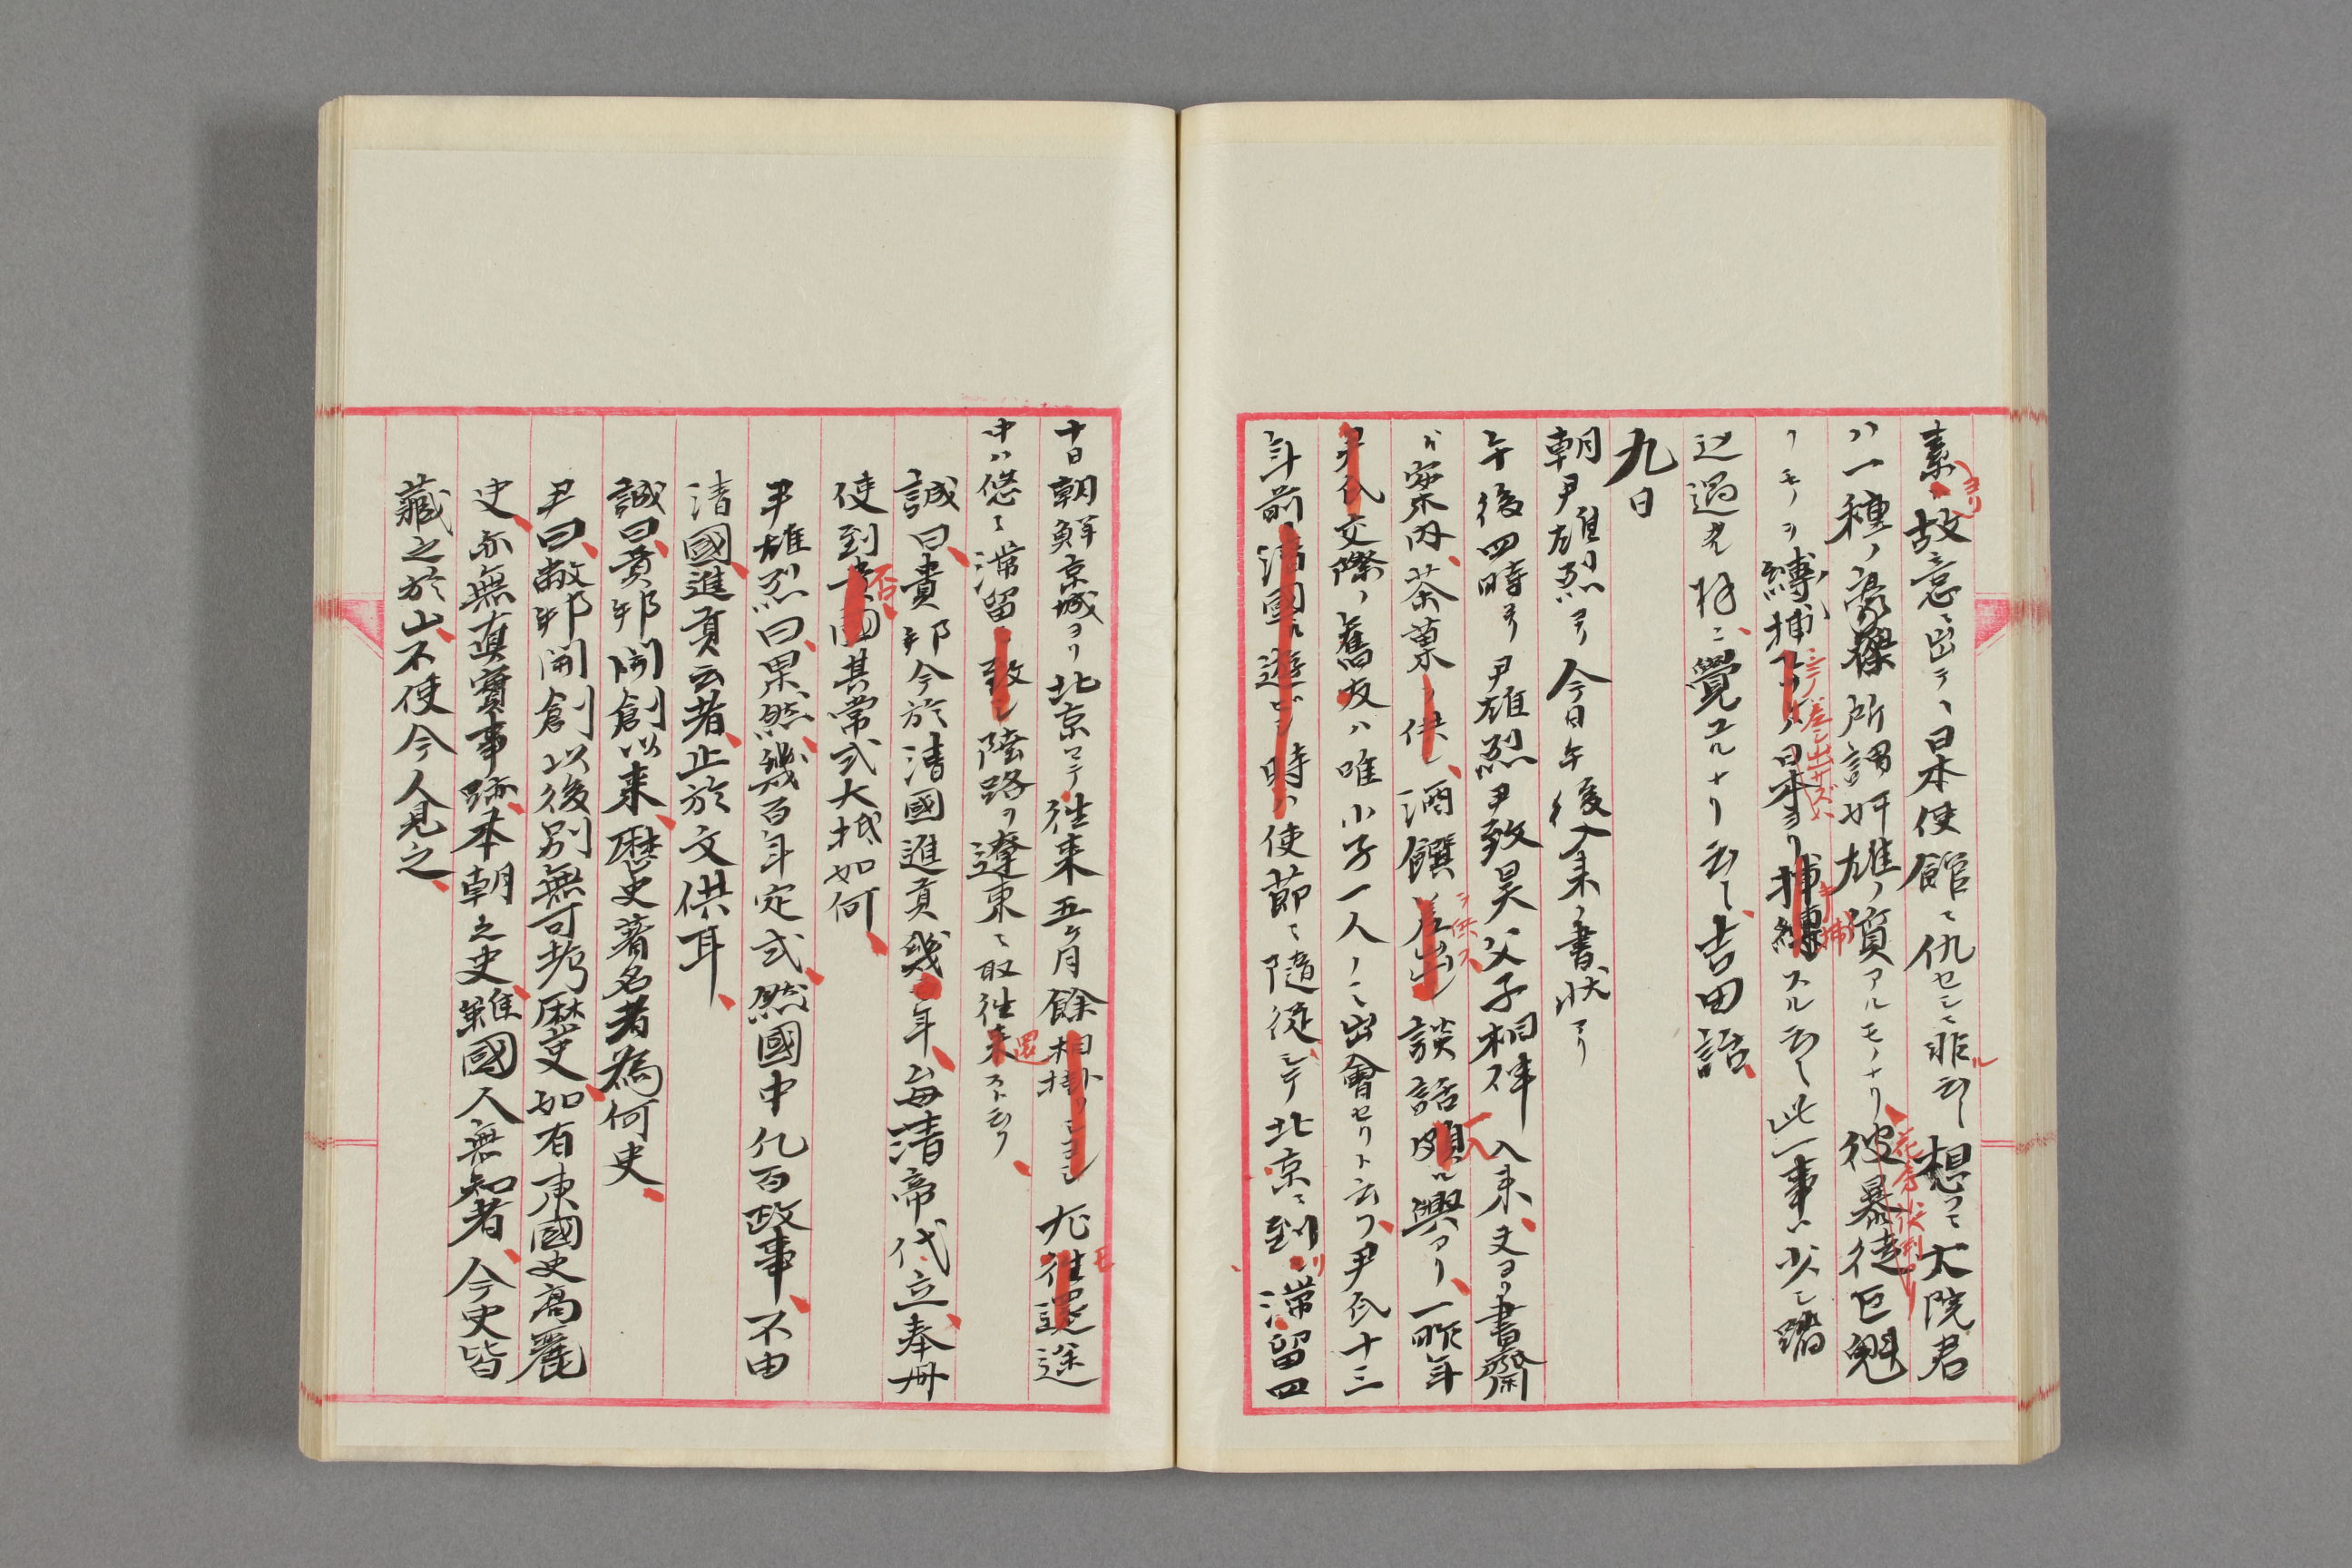 素ヨリ故意ニ出テ、日本使館ニ仇セシニ非ル云〻想フニ大院君
ハ一種ノ豪傑所謂奸雄ノ質アルモノナリ彼暴徒巨魁
ノモノヲ縛捕シテ差シ出サズバ日本ヨリ捕縛スル云〻此一事ハ少シ踏
込過キ様ニ覚ユルナリ云〻吉田話
九日
朝尹雄烈ヨリ今日午後入来ノ書状アリ
午後四時ヨリ尹雄烈尹致昊父子相伴入来、丈ヨリ書齋
ガ案内、茶菓ヲ供シ、酒饌ヲ供ス、談話頗ル興アリ、一昨年
尹氏交際ノ舊友ハ唯小子一人ノミ出會セリト云フ、尹氏十三
年前清國ニ遊ビシ時ハ使節ニ隨従シテ北京ニ到リ滞留四
十日朝鮮京城ヨリ北京マテ往来五ケ月餘相掛リシヨシ尤往還途
中ハ悠ニ滞留致シ陸路ヲ遼東ニ取往還スト云フ、
誠曰、貴邦今於清國進貢幾年、毎清帝代立、奉冊
使到否、其常式大抵如何、
尹雄烈曰、果然、幾百年定式、然國中凡百政事、不由
清國、進貢云者、止於文供耳、
誠曰、貴邦開創以来、歴史著名者為何史、
尹曰、敝邦開創以後別無可考歴史、如有東國史高麗
史、亦無真實事跡、本朝之史、雖國人無知者、今史皆
藏之於山、不使今人見之、